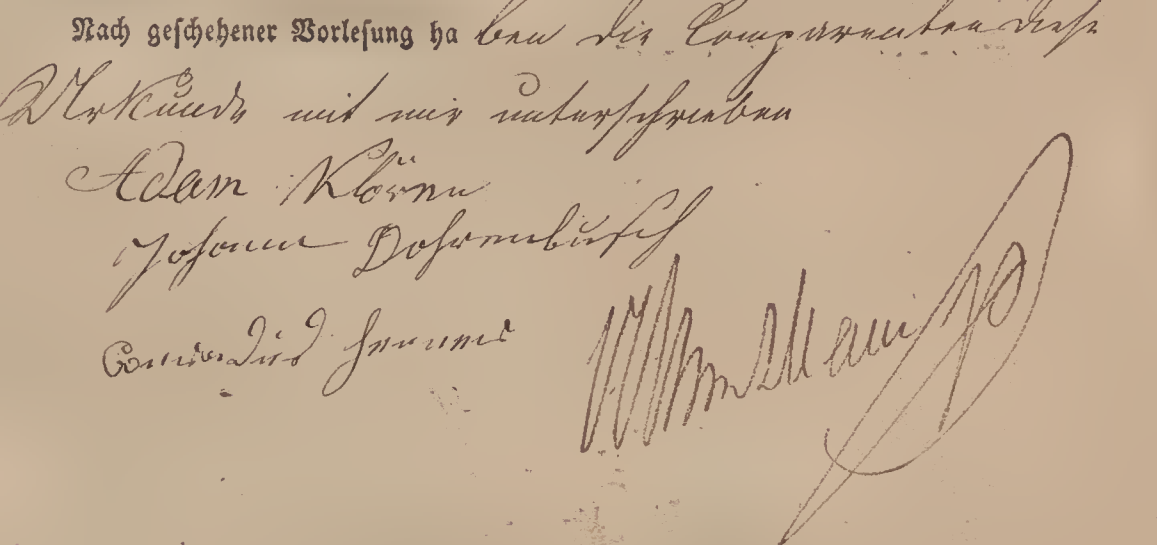 Nach geschehener Vorlesung haben die Comparenten diese
Urkunde mit mir unterschrieben
Adam Klören
Johann Dohrenbusch
Conradus Hennes